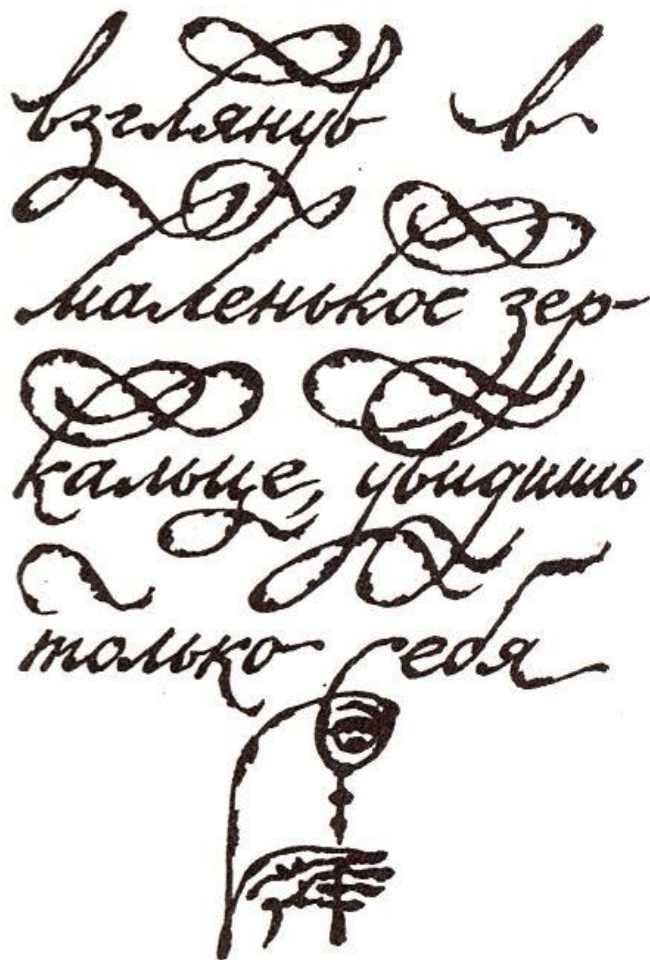 взглянув в
маленькое зер-
кальце, увидишь
только себя